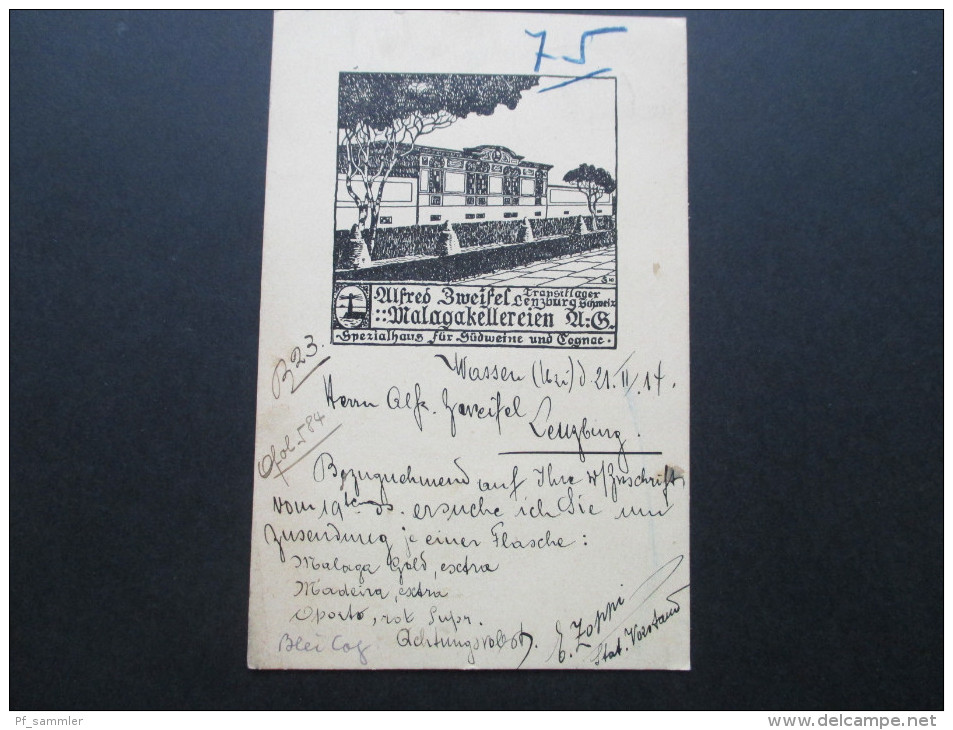 75
Alfred Zweifel Transitlager
Lenzburg Schweiz
::Malagakellereien A:G.
·Spezialhaus für Südweine und Cognac·
B23.
Wassen (Uri) d. 21. II. 14.
Herrn Alf. Zweifel
Lenzburg.
fol 584
Bezugnehmend auf Ihre w/Zuschrift
vom 19ten ds. ersuche ich Sie um
Zusendung je einer Flasche:
Malaga Gold, extra
Madeira, extra
Oporto, rot Supr.
Achtungsvollst,
E. Zoppi
Stat. Vorstand
Pf_sammler
www.delcampe.net